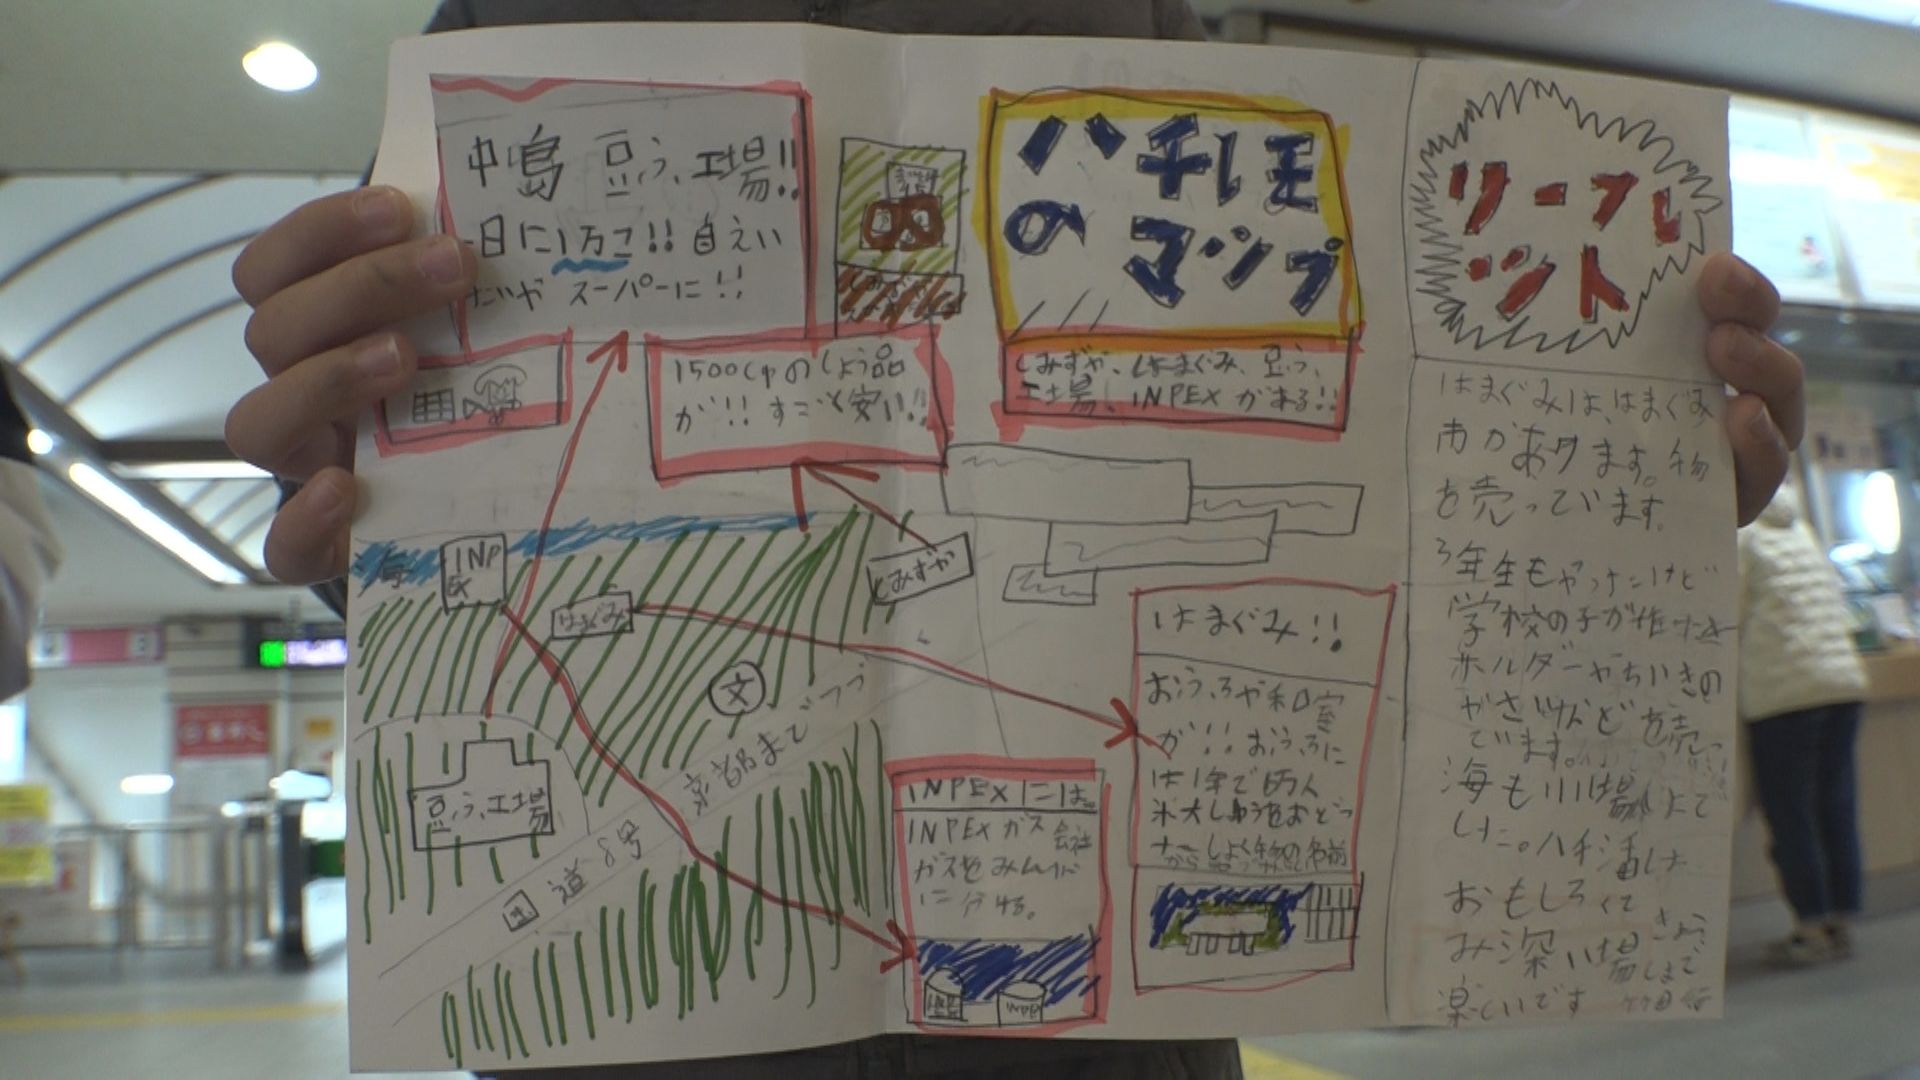 中島 豆ふ工場!!
一日に1万こ!! 自えい
たいや スーパーに!!
ハチレモ
のマップ
リーフレ
ット
1500しゅのしょう品
が!! すごく安い!!
しみずや、はまぐみ、豆ふ
工場、INPEXがある!!
はまぐみは、はまぐみ
市があります。物
を売っています。
3年生もやったけど
学校の子が作った
ホルダーやちいきの
やさいなどを売っ
ています。
海も
した。ハチ活した
おもしろくて
きょう
み深い場
楽しいです
海
INP
EX
はまぐみ
しみずや
文
豆ふ工場
国道8号
京都までつづ
はまぐみ!!
おふろや和室
が!! おふろに
は1年で6万人
INPEXには…
INPEXガス会社
ガスをみんな
に分ける。
INPEX